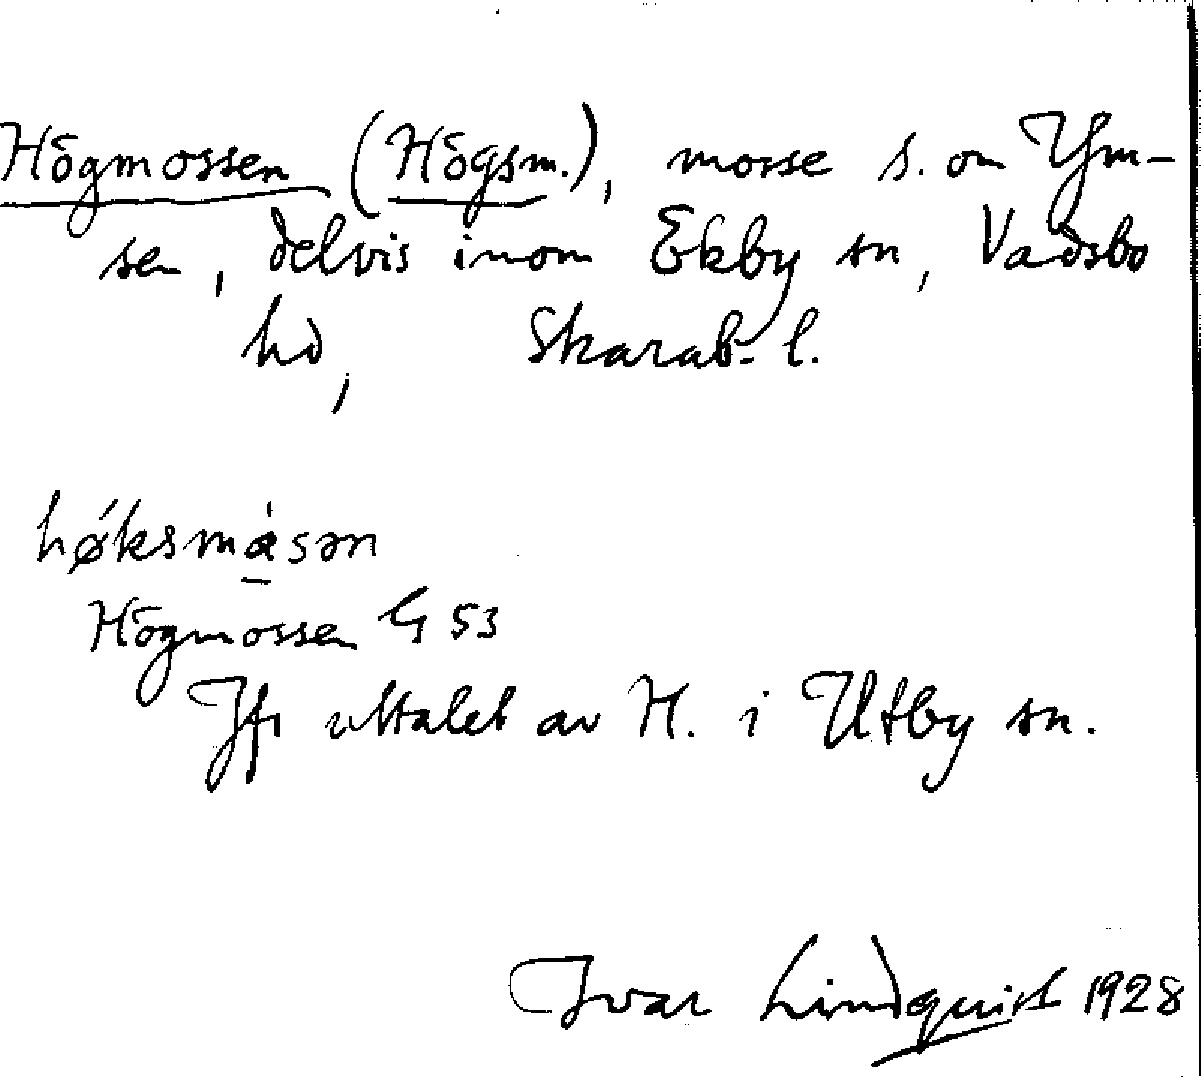 Högmossen (Högsm.), mosse s. om Ym-
sen, delvis inom Ekby sn, Vadsbo
hd, Skarab. l.
høksmåsən
Högmossen G 53
Jfr uttalet av H. i Utby sn.
Ivar Lindquist 1928